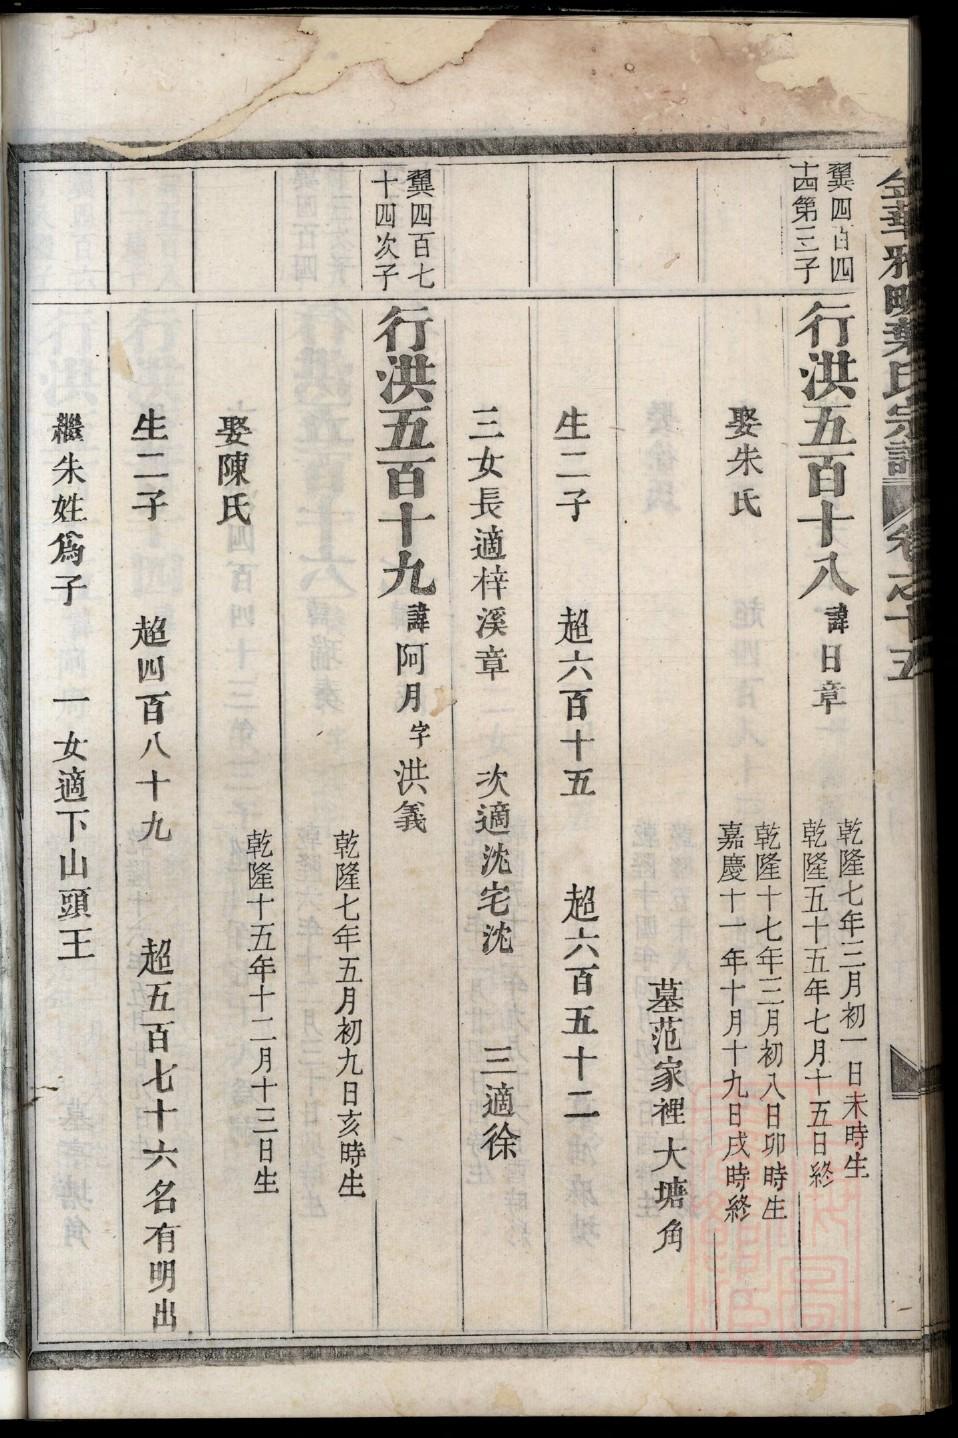 金華雅畈葉氏宗譜 卷之十五
翼四百四
十四第三子
行洪五百十八 諱日章
乾隆七年三月初一日未時生
乾隆五十五年七月十五日終
娶朱氏
乾隆十七年三月初八日卯時生
嘉慶十一年十月十九日戌時終
墓范家裡大塘角
生二子 超六百十五 超六百五十二
三女長適梓溪章 次適沈宅沈 三適徐
翼四百七
十四次子
行洪五百十九 諱阿月 字洪義
乾隆七年五月初九日亥時生
娶陳氏
乾隆十五年十二月十三日生
生二子 超四百八十九 超五百七十六名有明出
繼朱姓爲子 一女適下山頭王